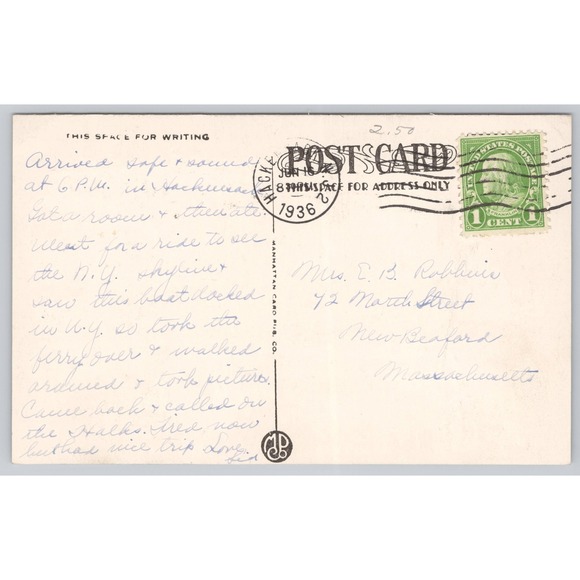 2.50
THIS SPACE FOR WRITING
POST CARD
THIS SPACE FOR ADDRESS ONLY
HACKE
JUN 15
8
1936
UNITED STATES POSTAGE
1 CENT 1
Arrived safe & sound
at 6 P.M. in Hackensack
Got a room & then ate.
Went for a ride to see
the N.Y. skyline &
saw this boat docked
in N.Y. so took the
ferry over & walked
around & took pictures.
Came back & called on
the Halks. Tired now
but had nice trip Love.
MANHATTAN CARD PUB. CO.
Mrs. E. B. Robbins
72 North Street
New Bedford
Massachusetts